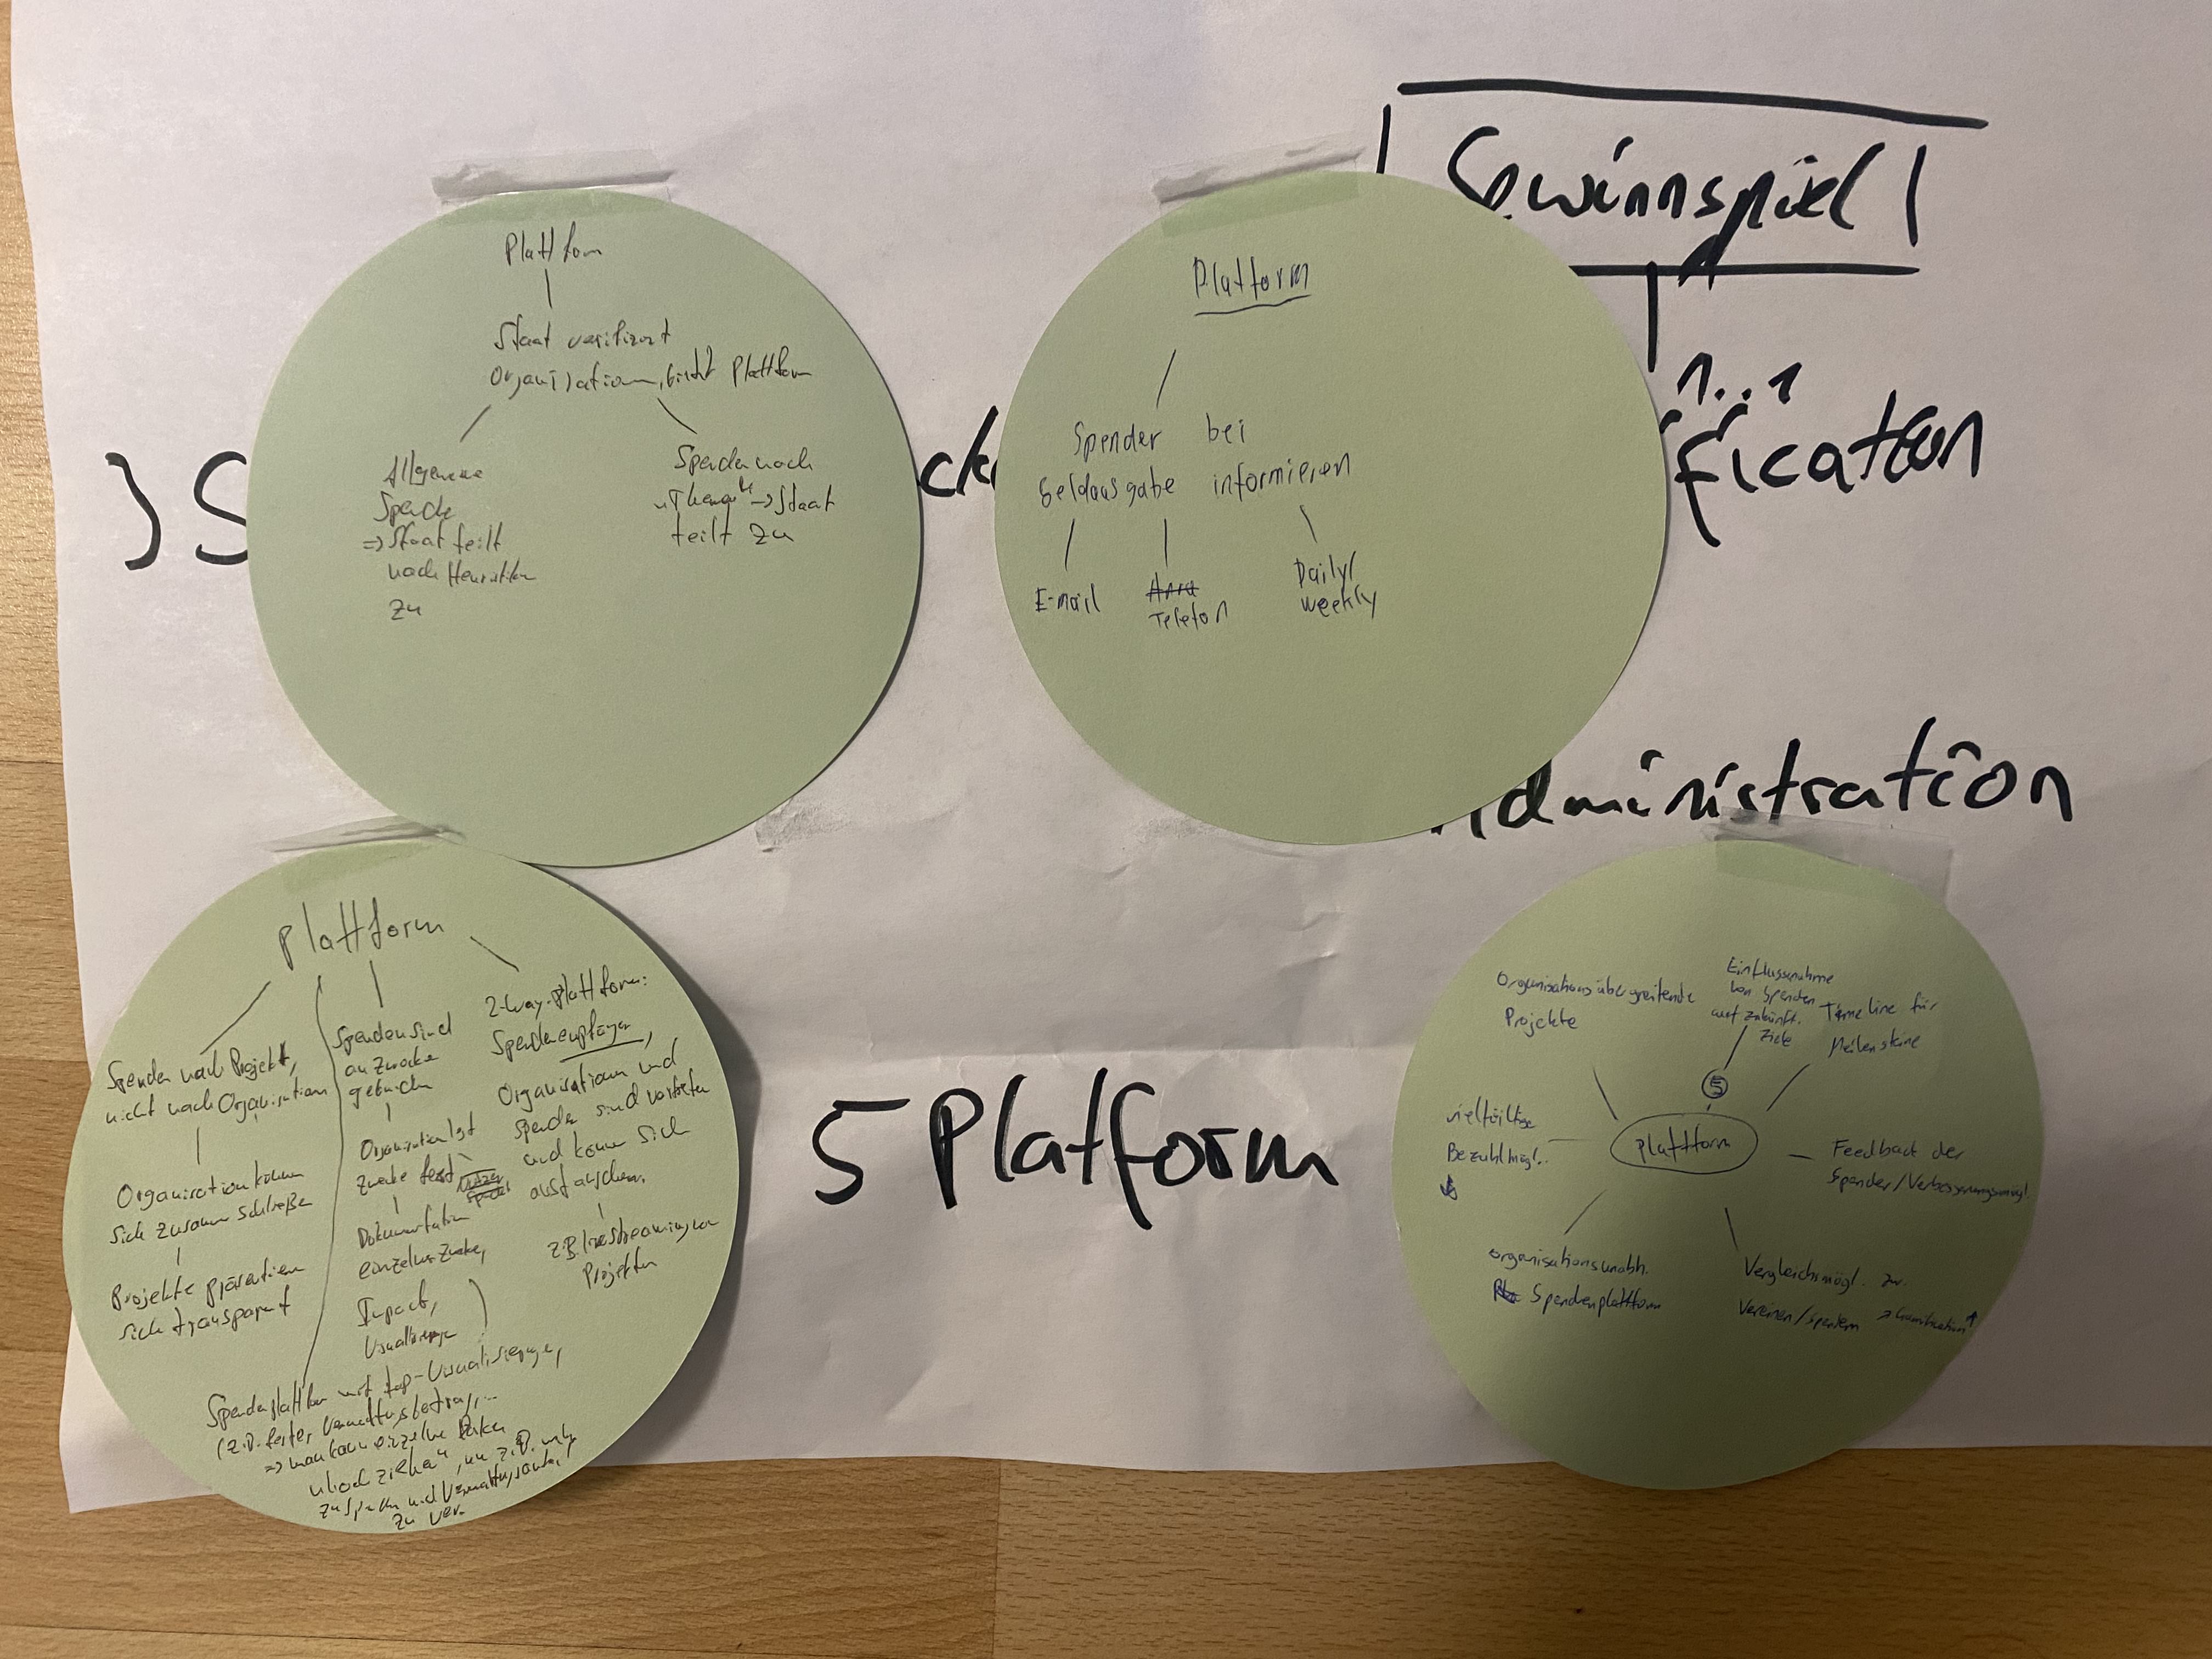 Gewinnspiel
1..1
fication
Administration
5 Platform
Plattform
Staat verifiziert
Organisationen, bietet Plattform
Allgemeine
Spende
=> Staat teilt
nach Heuristiken
zu
Spende nach
"Thema" -> Staat
teilt zu
Platform
Spender bei
Geldausgabe informieren
E-mail
Telefon
Daily/
weekly
Plattform
Spenden nach Projekt,
nicht nach Organisation
Organisationen können
sich zusammenschließen
Projekte präsentieren
sich transparent
Spenden sind
an Zwecke
gebunden
Organisation legt
Zwecke fest
Dokumentation
einzelner Zwecke,
Impact,
Visualisierung
2-Way-Plattform:
Spendenempfänger,
Organisationen und
Spender sind vertreten
und können sich
austauschen.
z.B. livestreaming von
Projekten
Spendenplattform mit top-Visualisierung,
(z.B. fester Verwaltungsbetrag,...
=> man kann einzelne Balken
"hochziehen", um z.B. mehr
zu spenden und Verwaltungsanteil
zu ver.
Organisationsübergreifende
Projekte
Einflussnahme
von Spenden
auf zukünft.
Ziele
Timeline für
Meilensteine
5
Plattform
vielfältige
Bezahlmögl.
Feedback der
Spender/Verbesserungsmögl.
organisationsunabh.
Spendenplattform
Vergleichsmögl. zw.
Vereinen/Spendern -> Gamification ↑